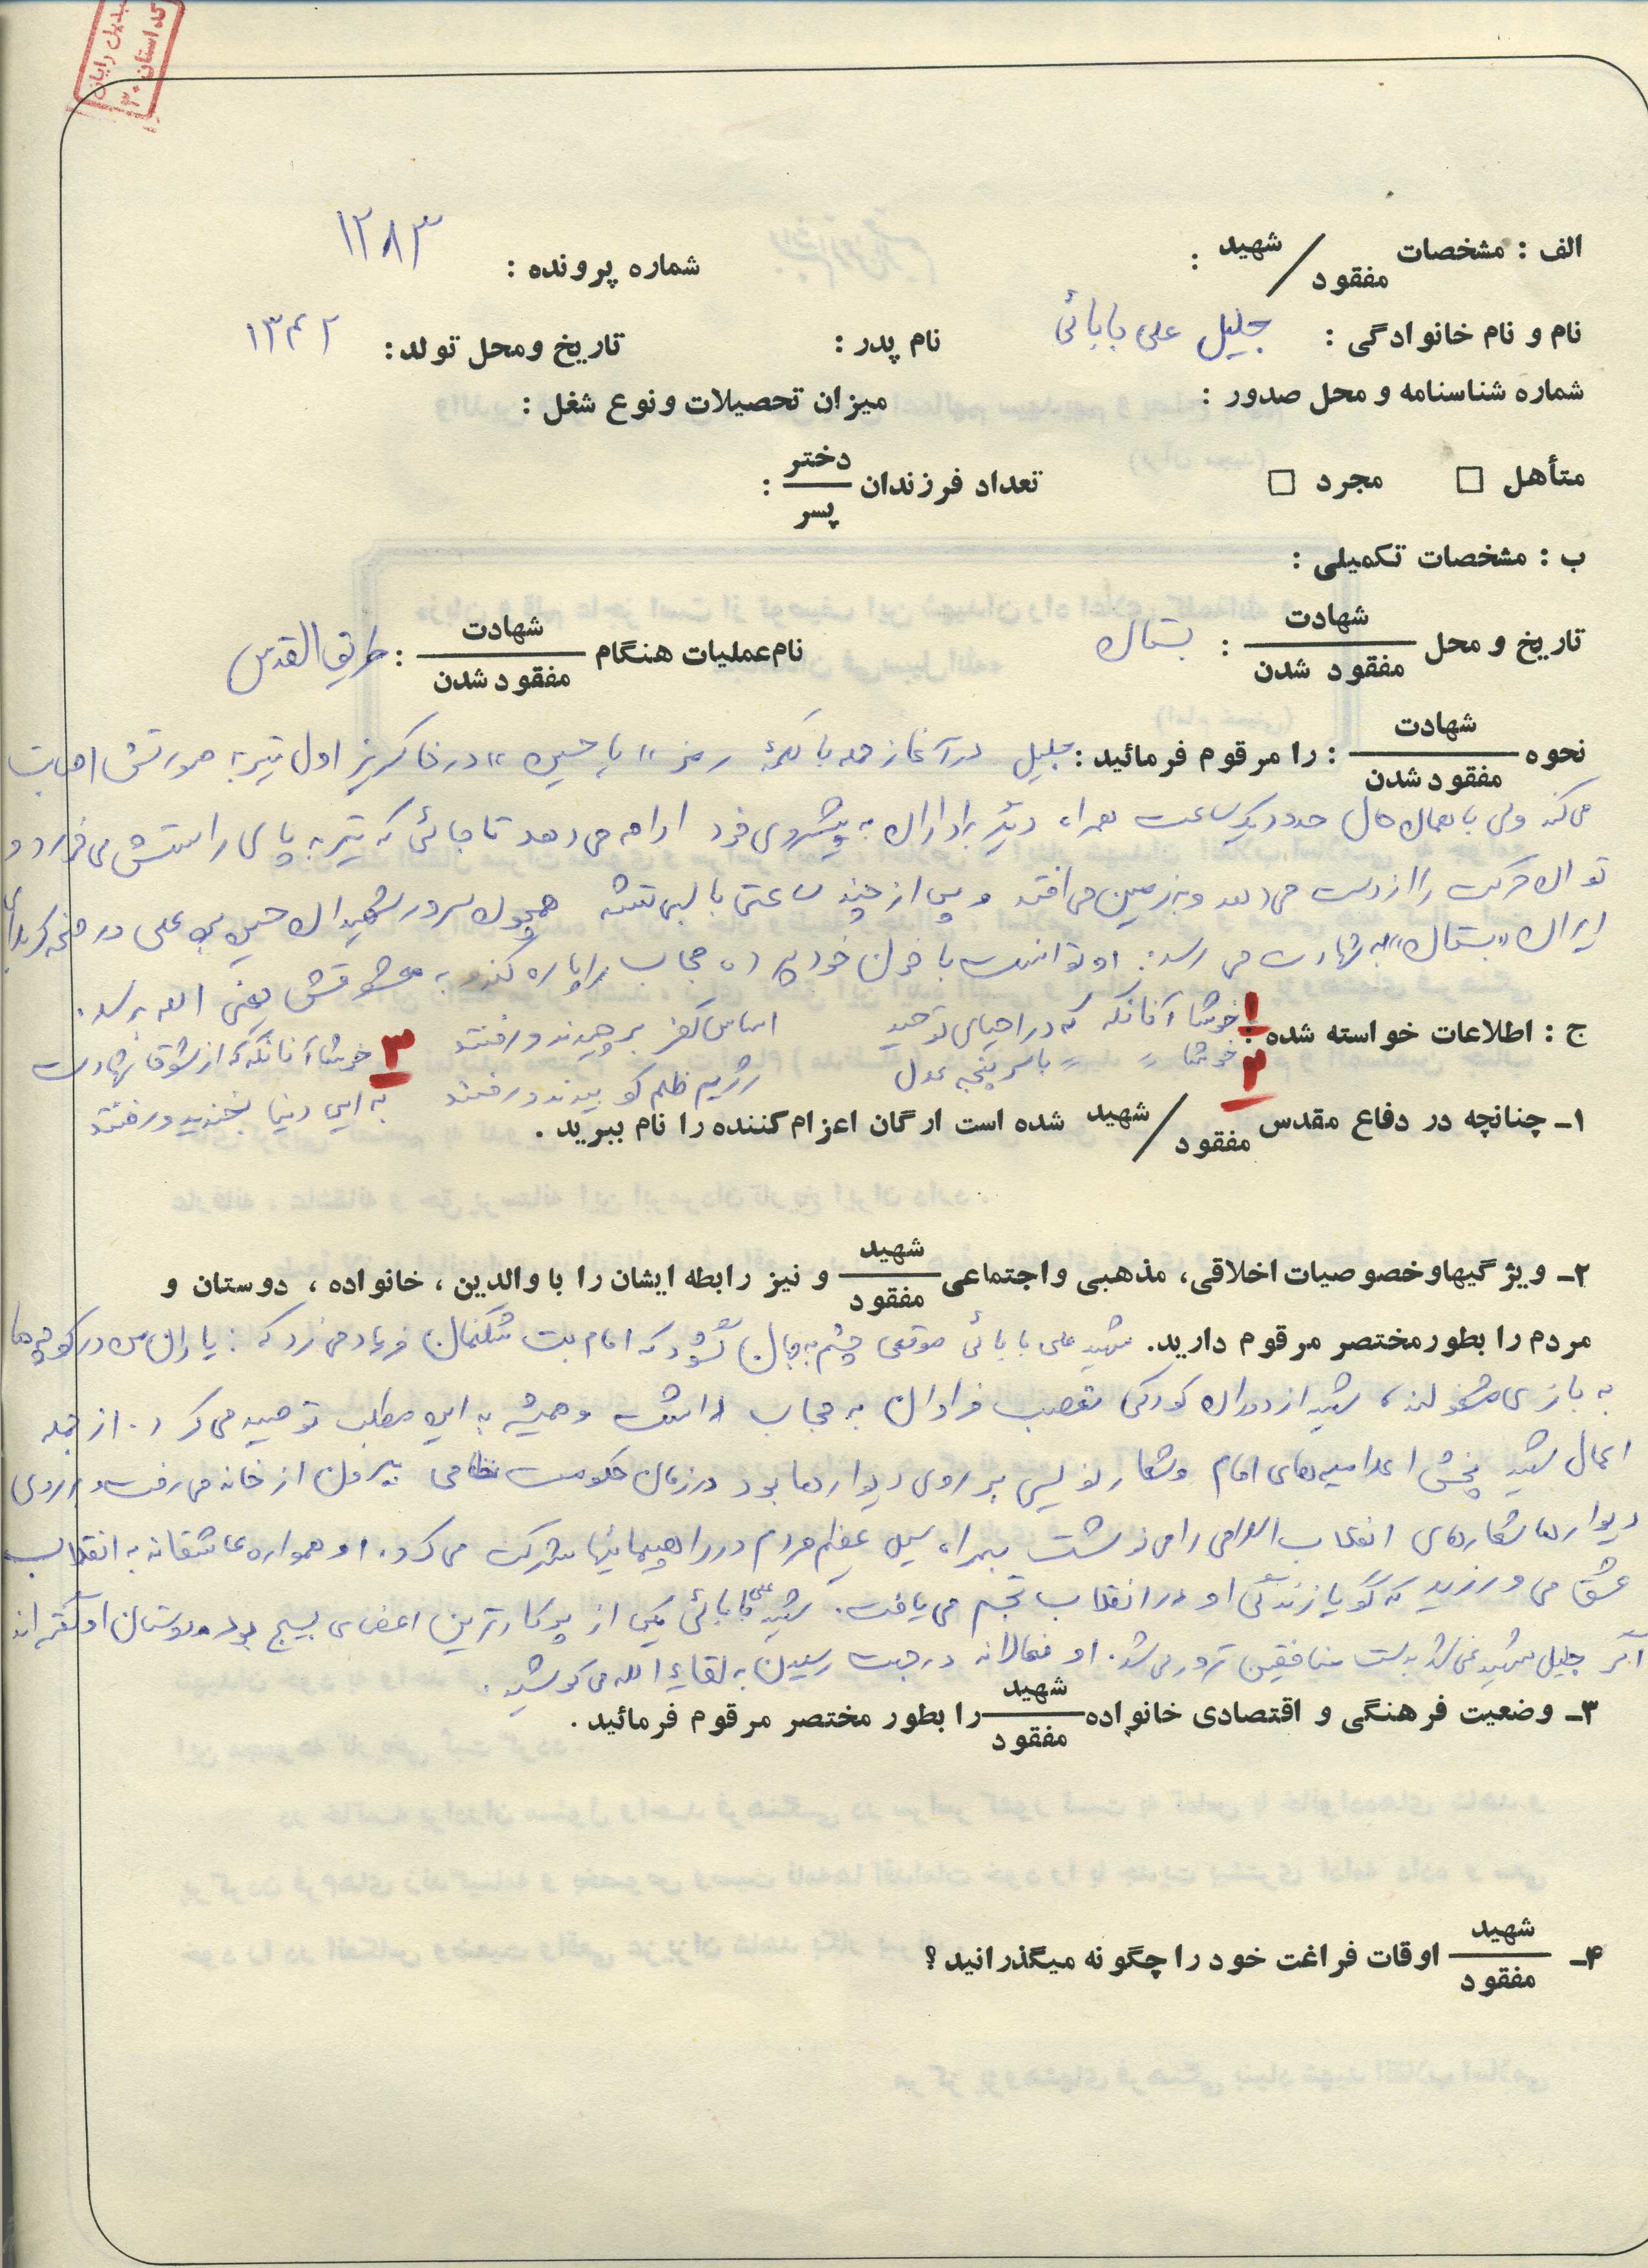 تبدیل رایان
کد استان ۳۰
الف : مشخصات شهید / مفقود :
شماره پرونده : ۱۲۸۳
نام و نام خانوادگی : جلیل علی بابائی نام پدر : تاریخ ومحل تولد : ۱۳۴۲
شماره شناسنامه و محل صدور : میزان تحصیلات و نوع شغل :
متأهل □ مجرد □ تعداد فرزندان دختر / پسر :
ب : مشخصات تکمیلی :
تاریخ و محل شهادت / مفقود شدن : بستان نام عملیات هنگام شهادت / مفقود شدن : طریق القدس
نحوه شهادت / مفقود شدن : را مرقوم فرمائید : جلیل در آغاز حمله با کلمهٔ رمز «یا حسین» در خاکریز اول تیر به صورتش اصابت
می کند ولی با همان حال حدود یکساعت همراه دیگر برادران به پیشروی خود ادامه می دهد تا جائی که تیر به پای راستش می خورد و
توان حرکت را از دست می دهد و بر زمین می افتد و پس از چند ساعتی با لبی تشنه همچون سرور شهیدان حسین بن علی در صحنه کربلای
ایران «بستان» به شهادت می رسد. او توانست با خون خود پرده حجاب را پاره کند و به معشوقش یعنی الله برسد.
ج : اطلاعات خواسته شده :
۱ خوشا آنانکه که در احیای توحید اساس کفر برچیدند و رفتند
۲ خوشا " " با سر پنجه عدل رژیم ظلم کوبیدند و رفتند
۳ خوشا آنانکه که از شوق شهادت
به این دنیا بخندیدند و رفتند
۱ـ چنانچه در دفاع مقدس شهید / مفقود شده است ارگان اعزام کننده را نام ببرید .
۲ـ ویژگیها و خصوصیات اخلاقی، مذهبی و اجتماعی شهید / مفقود و نیز رابطه ایشان را با والدین ، خانواده ، دوستان و
مردم را بطور مختصر مرقوم دارید. شهید علی بابائی موقعی چشم به جهان گشود که امام بت شکنمان فریاد می زد که : یاران من در کوچه ها
به بازی مشغولند، شهید از دوران کودکی تعصب فراوان به حجاب داشت و همیشه به این مطلب توصیه می کرد. از جمله
اعمال شهید پخش اعلامیه های امام و شعار نویسی بر روی دیوارها بود در زمان حکومت نظامی بیرون از خانه می رفت و بر روی
دیوارها شعارهای انقلاب اسلامی را می نوشت بهمراه سیل عظیم مردم در راهپیمائیها شرکت می کرد. او همواره عاشقانه به انقلاب
عشق می ورزید که گویا زندگی او در انقلاب تجسم می یافت. شهید علی بابائی یکی از پرکارترین اعضای بسیج بود دوستان او گفته اند
اگر جلیل شهید نمی شد بدست منافقین ترور می شد. او فعالانه در جهت رسیدن به لقاء الله می کوشید.
۳ـ وضعیت فرهنگی و اقتصادی خانواده شهید / مفقود را بطور مختصر مرقوم فرمائید .
۴ـ شهید / مفقود اوقات فراغت خود را چگونه میگذرانید ؟